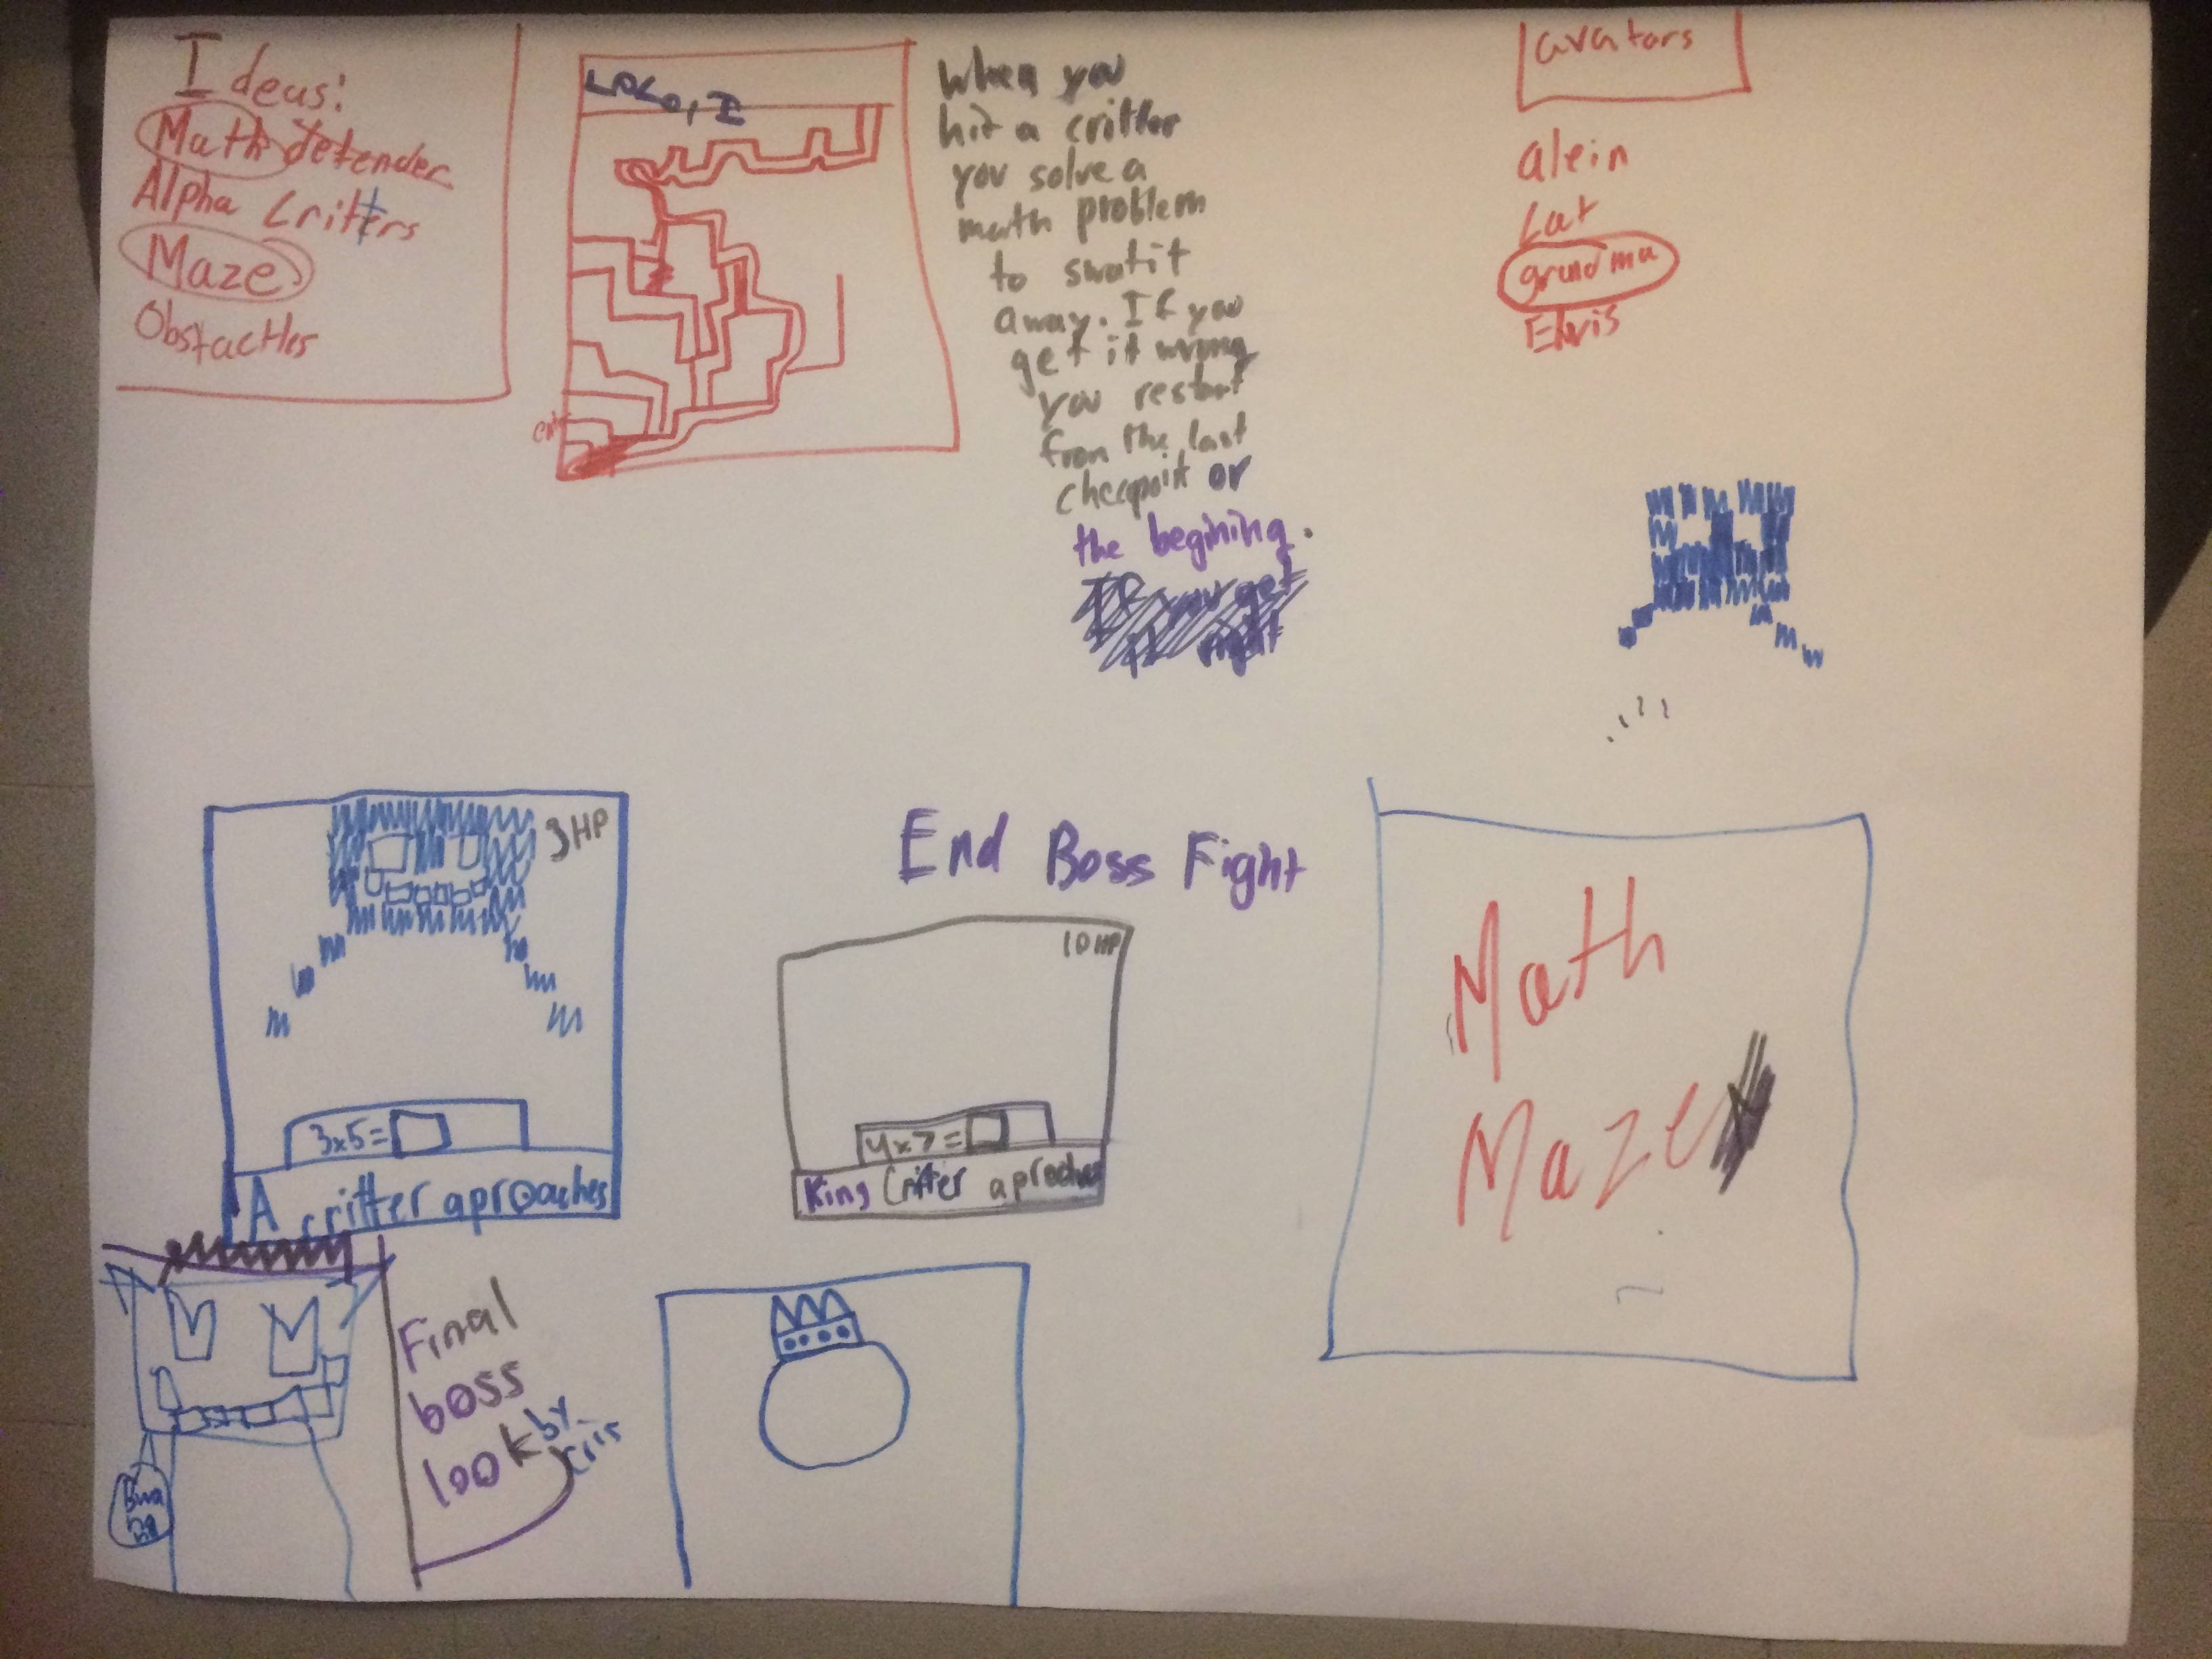 Ideas:
Math defender
Alpha Critters
Maze
Obstactles
When you
hit a critter
you solve a
math problem
to swat it
away. If you
get it wrong
you restart
from the last
checpoint or
the begining.
If you get
it
right
avators
alein
Cat
grandma
Elvis
3HP
3x5=
A critter aproaches
End Boss Fight
10 HP
4x7=
King Critter aproches
Math
Maze
Final
boss
look by
Cris